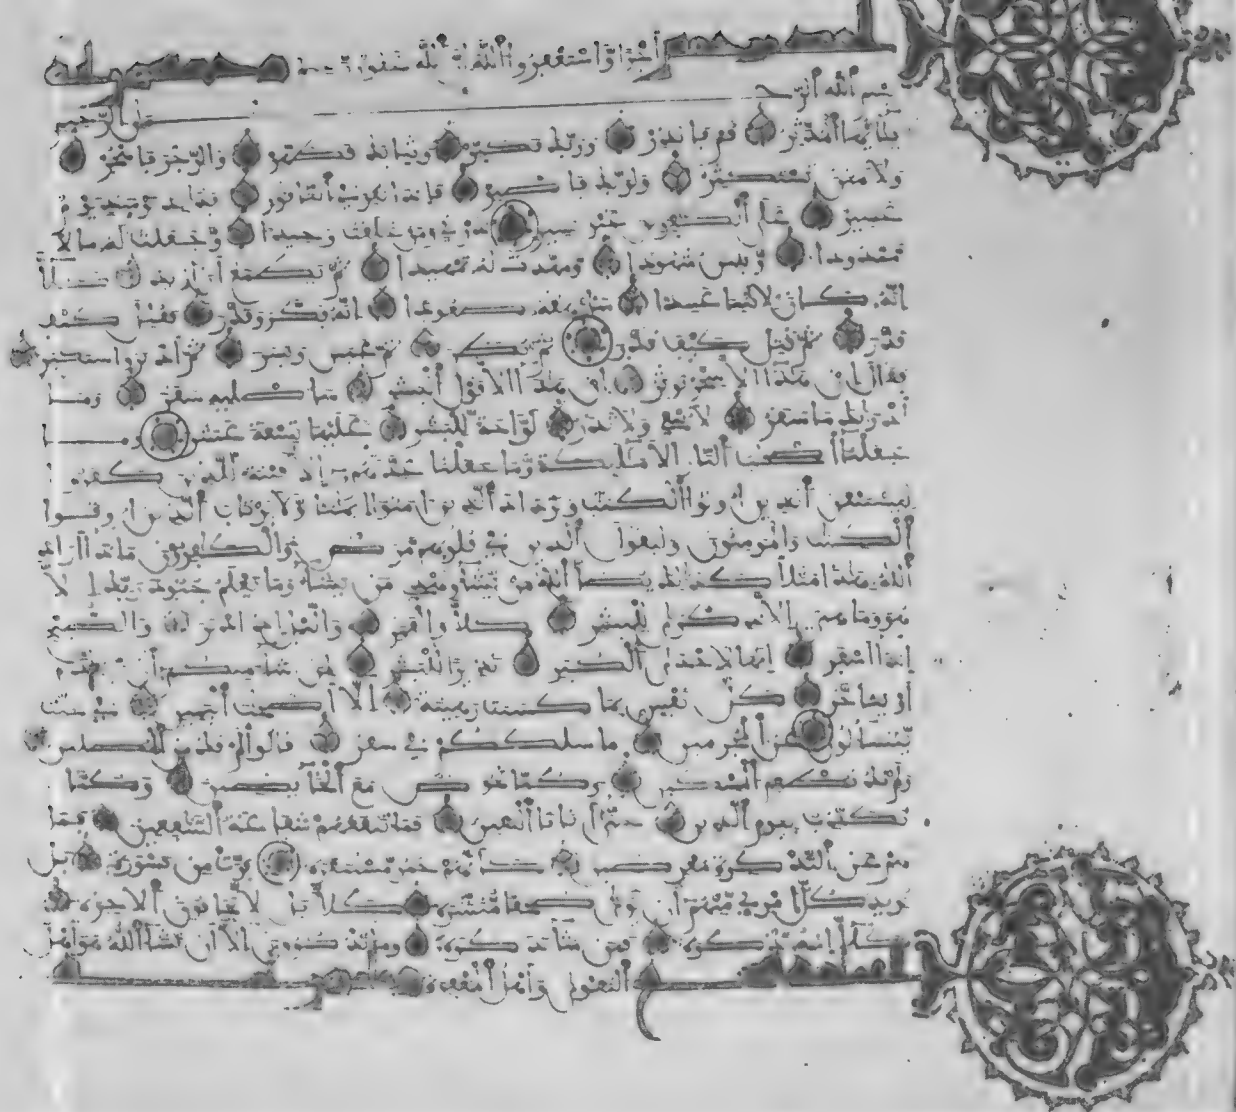 أجرا واستغفروا الله إن الله غفور رحيم
بسم الله الرحـ
ـمن الرحيم
يأيها المدثر قم فأنذر وربك فكبر وثيابك فطهر والرجز فاهجر
ولا تمنن تستكثر ولربك فاصبر فإذا نقر في الناقور فذلك يومئذ يوم
عسير على الكفرين غير يسير ذرني ومن خلقت وحيدا وجعلت له مالا
ممدودا وبنين شهودا ومهدت له تمهيدا ثم يطمع أن أزيد كلا
إنه كان لآيتنا عنيدا سأرهقه صعودا إنه فكر وقدر فقتل كيف
قدر ثم قتل كيف قدر ثم نظر ثم عبس وبسر ثم أدبر واستكبر
فقال إن هذا إلا سحر يؤثر إن هذا إلا قول البشر سأصليه سقر وما
أدريك ما سقر لا تبقي ولا تذر لواحة للبشر عليها تسعة عشر وما
جعلنا أصحب النار إلا ملئكة وما جعلنا عدتهم إلا فتنة للذين كفروا
ليستيقن الذين أوتوا الكتب ويزداد الذين ءامنوا إيمنا ولا يرتاب الذين أوتوا
الكتب والمؤمنون وليقول الذين في قلوبهم مرض والكفرون ماذا أراد
الله بهذا مثلا كذلك يضل الله من يشاء ويهدي من يشاء وما يعلم جنود ربك إلا
هو وما هي إلا ذكرى للبشر كلا والقمر واليل إذ أدبر والصبح
إذا أسفر إنها لإحدى الكبر نذيرا للبشر لمن شاء منكم أن يتقدم
أو يتأخر كل نفس بما كسبت رهينة إلا أصحب اليمين في جنت
يتساءلون عن المجرمين ما سلككم في سقر قالوا لم نك من المصلين
ولم نك نطعم المسكين وكنا نخوض مع الخائضين وكنا
نكذب بيوم الدين حتى أتانا اليقين فما تنفعهم شفاعة الشفعين فما
لهم عن التذكرة معرضين كأنهم حمر مستنفرة فرت من قسورة بل
يريد كل امرئ منهم أن يؤتى صحفا منشرة كلا بل لا يخافون الآخرة
كلا إنه تذكرة فمن شاء ذكره وما تذكرون إلا أن يشاء الله هو أهل
التقوى وأهل المغفرة